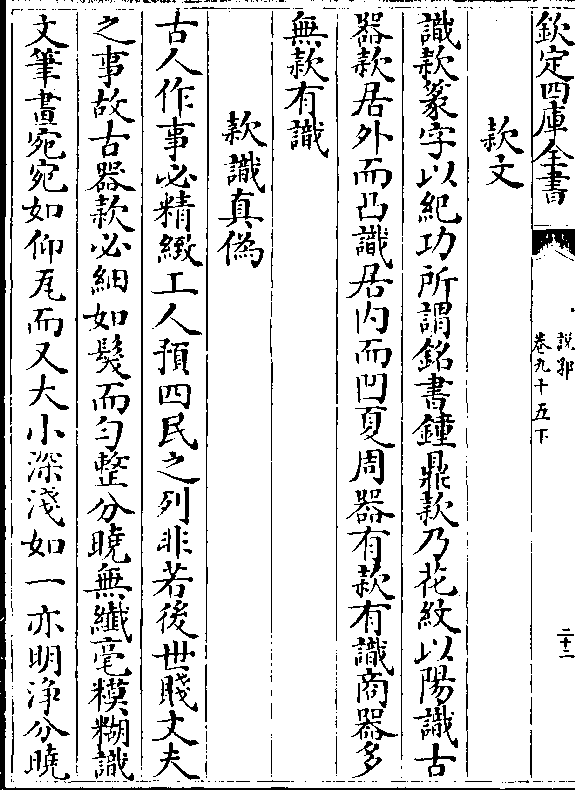 欽定四庫全書
說郛
卷九十五下
二十二
款文
識款篆字以紀功所謂銘書鐘鼎款乃花紋以陽識古
器款居外而凸識居内而凹夏周器有款有識商器多
無款有識
款識真偽
古人作事必精緻工人預四民之列非若後世賤丈夫
之事故古器款必細如髮而勻整分曉無纎毫糢糊識
文筆畫宛宛如仰瓦而又大小深淺如一亦明淨分曉